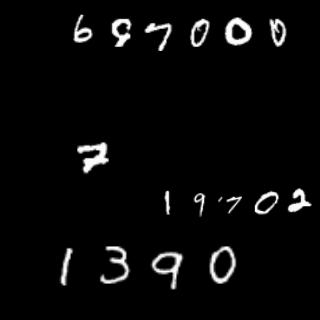 687000
7
19702
1390